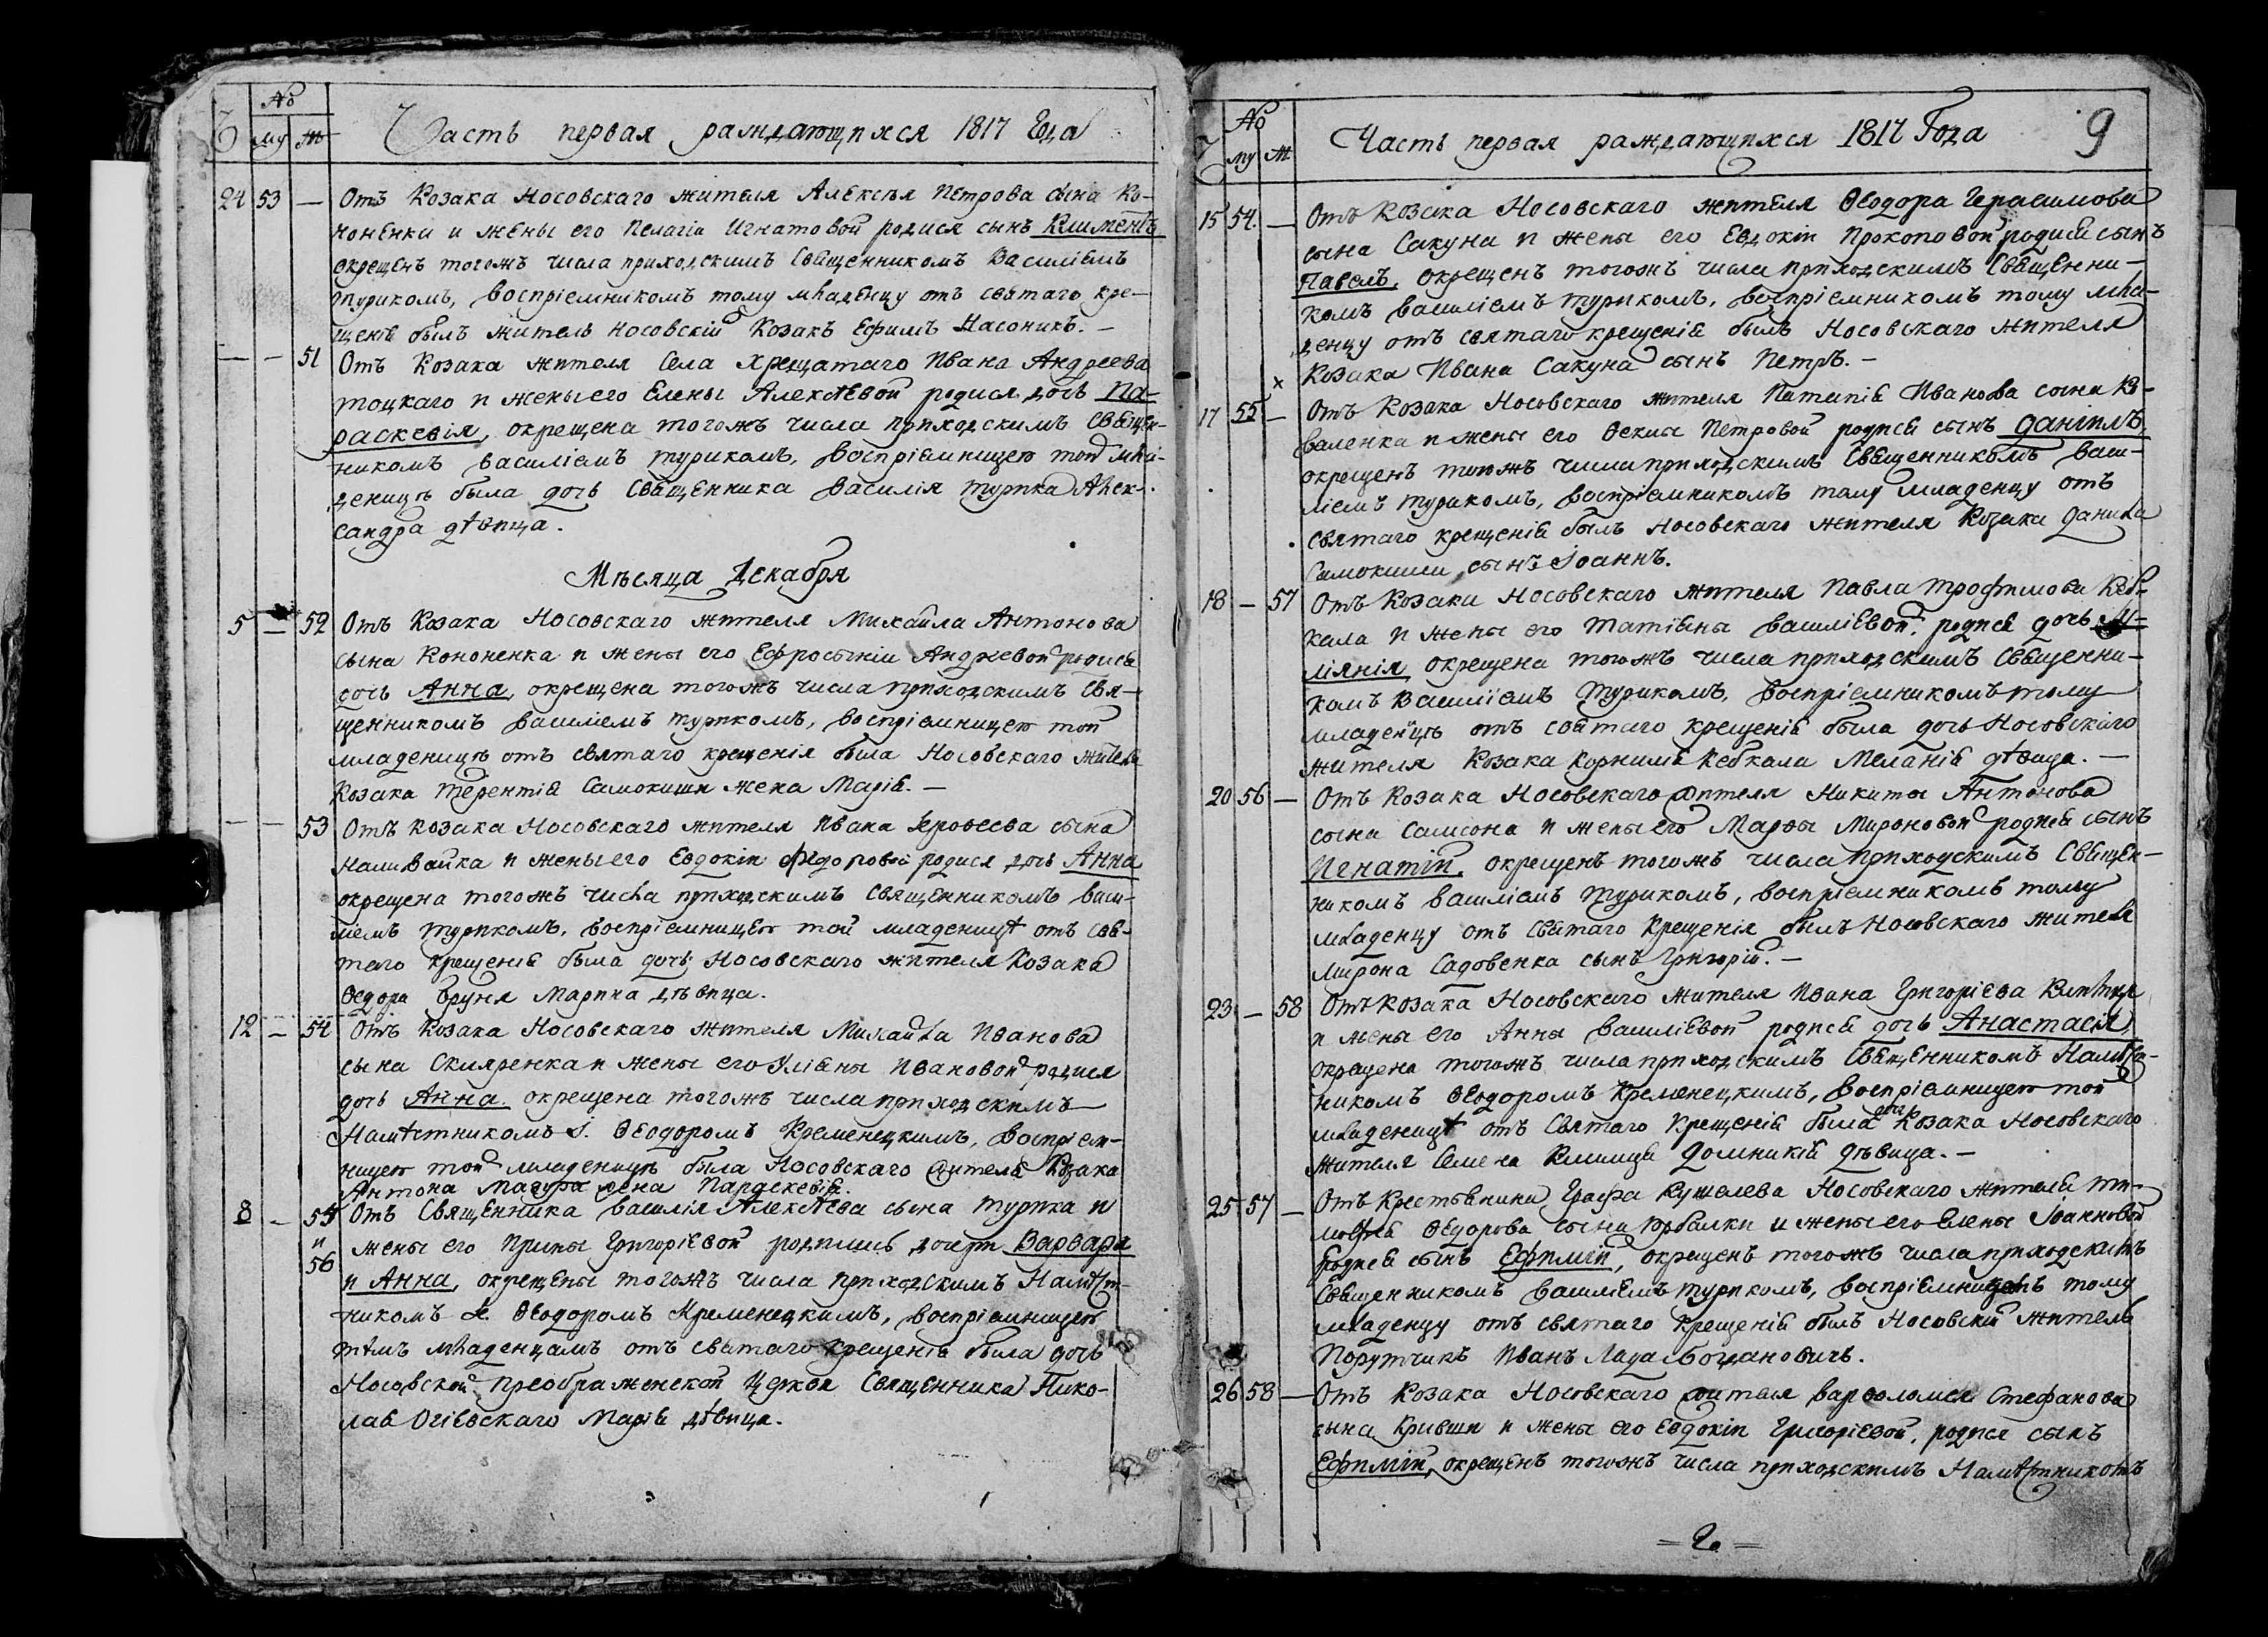 №
му ж
Часть первая раждающихся 1817 Года
24 53 — Отъ Козака Носовскаго жителя Алексѣя Петрова сына Ко-
ноненка и жены его Пелагіи Игнатовой родился сынъ Климентъ
окрещенъ тогожъ числа приходскимъ Священникомъ Василіемъ
Турикомъ, воспріемникомъ тому младенцу отъ святаго кре-
щенія былъ житель Носовскій Козакъ Ефимъ Насоникъ. —
— — 51 Отъ Козака жителя Села Хрещатаго Ивана Андреева
тоцкаго и жены его Елены Алексѣевой родися дочь Па-
раскевія, окрещена тогожъ числа приходскимъ Священ-
никомъ Василіемъ Турикомъ, воспріемницею той мла-
деницѣ была дочь Священника Василія Турика Алек-
сандра дѣвица.
Мѣсяца Декабря
5 — 52 Отъ Козака Носовскаго жителя Михайла Антонова
сына Кононенка и жены его Ефросиніи Андреевой родися
дочь Анна, окрещена тогожъ числа приходскимъ Свя-
щенникомъ Василіемъ Турикомъ, воспріемницею той
младеницѣ отъ святаго крещенія была Носовскаго жителя
Козака Терентія Самокиши жена Марія. —
— — 53 Отъ Козака Носовскаго жителя Ивана Ерофеева сына
Наливайка и жены его Евдокіи Федоровой родися дочь Анна
окрещена тогожъ числа приходскимъ Священникомъ Васи-
ліемъ Турикомъ, воспріемницею той младеницѣ отъ свя-
таго крещенія была дочь Носовскаго жителя Козака
Ѳедора Бруня Марина дѣвица.
12 — 54 Отъ Козака Носовскаго жителя Михайла Иванова
сына Скляренка и жены его Уліяны Ивановой родися
дочь Анна. окрещена тогожъ числа приходскимъ
Намѣстникомъ І. Ѳеодоромъ Кременецкимъ, воспріем-
ницею той младеницѣ была Носовскаго жителя Козака
Антона Магура жена Параскевія.
8 — 55 Отъ Священника Василія Алексѣева сына Турика и
и жены его Ирины Григоріевой родились дочери Варвара
56 и Анна, окрещены тогожъ числа приходскимъ Намѣст-
никомъ І. Ѳеодоромъ Кременецкимъ, воспріемницею
тѣмъ младенцамъ отъ святаго крещенія была дочь
Носовской Преображенской Церкви Священника Нико-
лая Огіевскаго Марія дѣвица.
№ 9
му ж
Часть первая раждающихся 1817 Года
15 54. — Отъ Козака Носовскаго жителя Ѳеодора Герасимова
сына Сакуна и жены его Евдокіи Прокоповой родися сынъ
Павелъ, окрещенъ тогожъ числа приходскимъ Священни-
комъ Василіемъ Турикомъ, воспріемникомъ тому мла-
денцу отъ святаго крещенія былъ Носовскаго жителя
Козака Ивана Сакуна сынъ Петръ. —
х
17 55 — Отъ Козака Носовскаго жителя Патапія Иванова сына Ко-
валенка и жены его Ѳеклы Петровой родися сынъ Даніилъ,
окрещенъ тогожъ числа приходскимъ Священникомъ Васи-
ліемъ Турикомъ, воспріемникомъ тому младенцу отъ
святаго крещенія былъ Носовскаго жителя Козака Данила
Самокиши сынъ Іоаннъ.
18 — 57 Отъ Козака Носовскаго жителя Павла Трофимова Кеб-
кала и жены его Татіяны Василіевой, родися дочь
ліянія, окрещена тогожъ числа приходскимъ Священни-
комъ Василіемъ Турикомъ, воспріемникомъ тому
младенцѣ отъ святаго крещенія была дочь Носовскаго
жителя Козака Корнилія Кебкала Меланія дѣвица. —
20 56 — Отъ Козака Носовскаго жителя Никиты Антонова
сына Самсона и жены его Марфы Мироновой родися сынъ
Игнатій, окрещенъ тогожъ числа приходскимъ Священ-
никомъ Василіемъ Турикомъ, воспріемникомъ тому
младенцу отъ Святаго Крещенія былъ Носовскаго жителя
Мирона Садовенка сынъ Григорій. —
23 — 58 Отъ Козака Носовскаго жителя Ивана Григоріева
и жены его Анны Василіевой родися дочь Анастасія,
окрещена тогожъ числа приходскимъ Священникомъ Намѣст-
никомъ Ѳеодоромъ Кременецкимъ, воспріемницею той
младеницѣ отъ Святаго Крещенія была дочь Козака Носовскаго
жителя Семена Климца Домникія дѣвица. —
25 57 — Отъ Крестьянина Графа Кушелева Носовскаго жителя Ти-
мофѣя Ѳедорова сына Рыбалки и жены его Елены Іоанновой
родися сынъ Ефимій, окрещенъ тогожъ числа приходскимъ
Священникомъ Василіемъ Турикомъ, воспріемникомъ тому
младенцу отъ святаго крещенія былъ Носовскій житель
Порутчикъ Иванъ Лада Богдановичъ.
26 58 — Отъ Козака Носовскаго жителя Варѳоломея Стефанова
сына Кривши и жены его Евдокіи Григоріевой, родися сынъ
Ефимій, окрещенъ тогожъ числа приходскимъ Намѣстникомъ